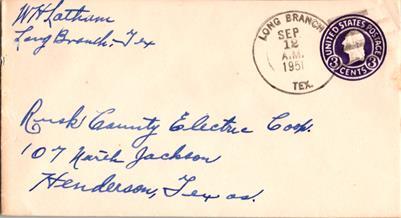 W H Latham
Long Branch - Tex
LONG BRANCH
SEP
12
A.M.
1951
TEX.
UNITED STATES POSTAGE
3 3
CENTS
Rusk County Electric Coop.
107 North Jackson
Henderson, Texas.